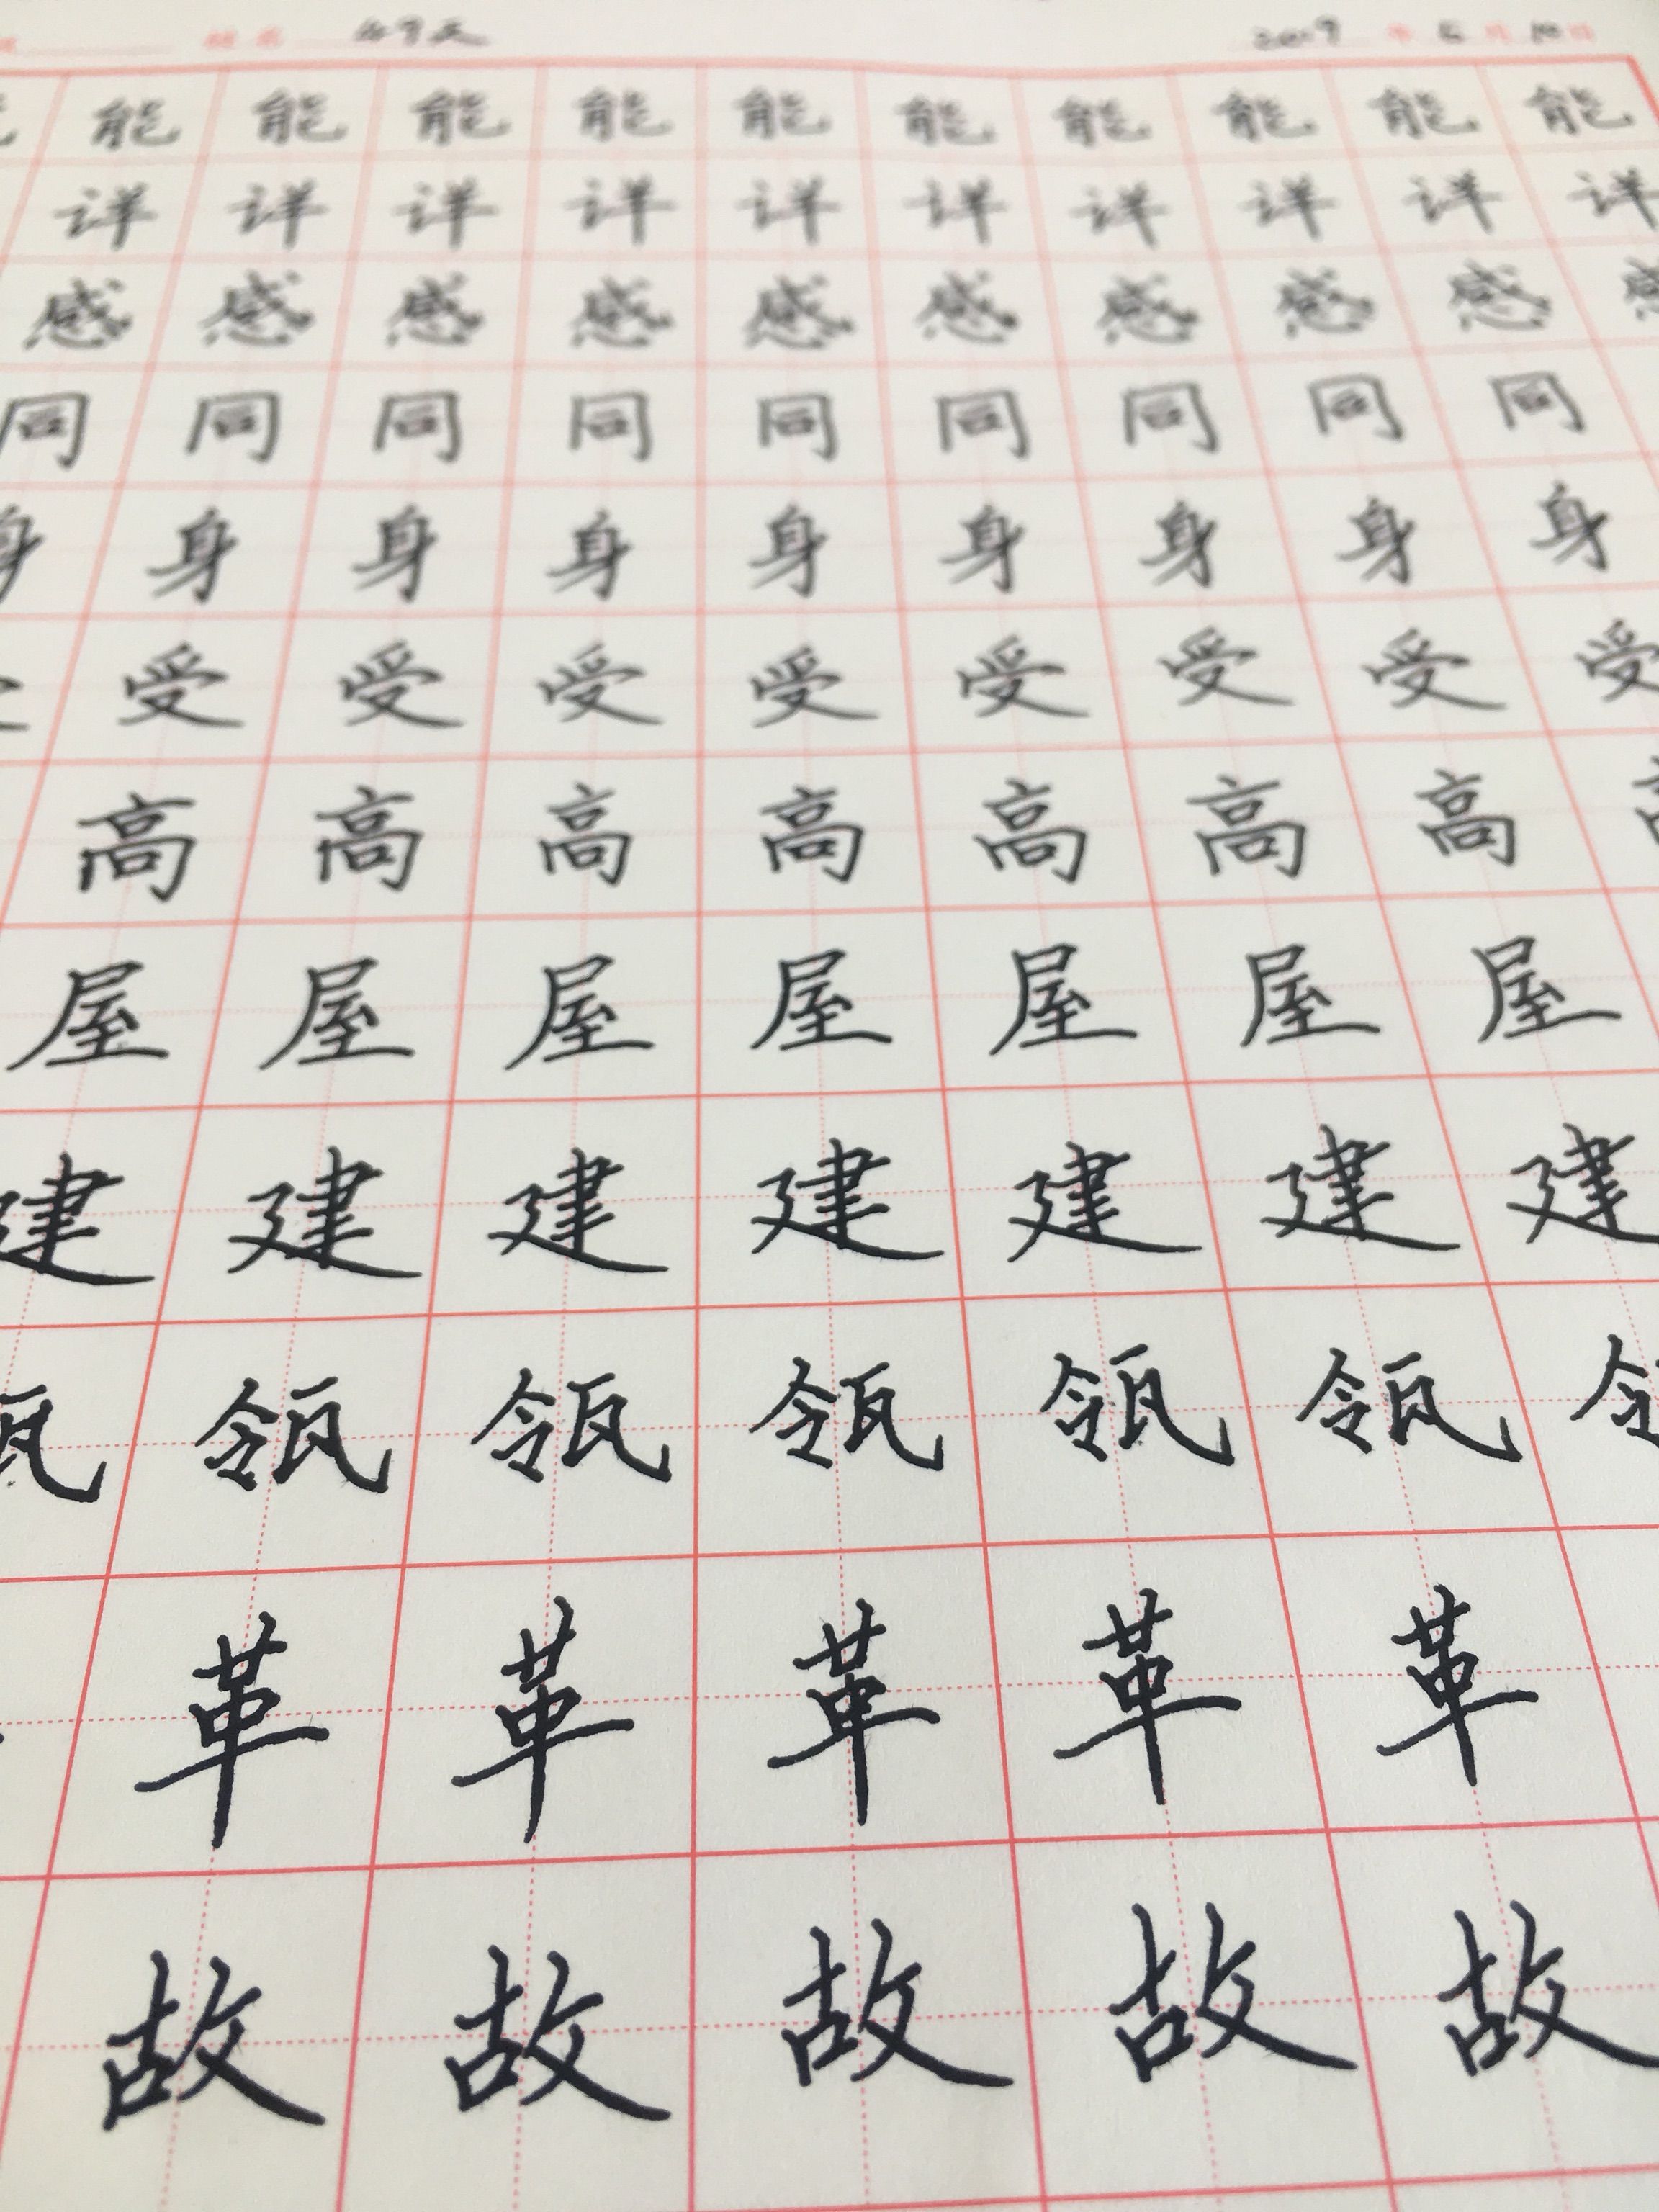 姓名 2019 年 月 10 日
能 能 能 能 能 能 能 能 能 能
详 详 详 详 详 详 详 详 详 详
感 感 感 感 感 感 感 感 感
同 同 同 同 同 同 同 同 同
身 身 身 身 身 身 身 身 身
受 受 受 受 受 受 受 受
高 高 高 高 高 高 高
屋 屋 屋 屋 屋 屋 屋
建 建 建 建 建 建 建
瓴 瓴 瓴 瓴 瓴
革 革 革 革 革
故 故 故 故 故